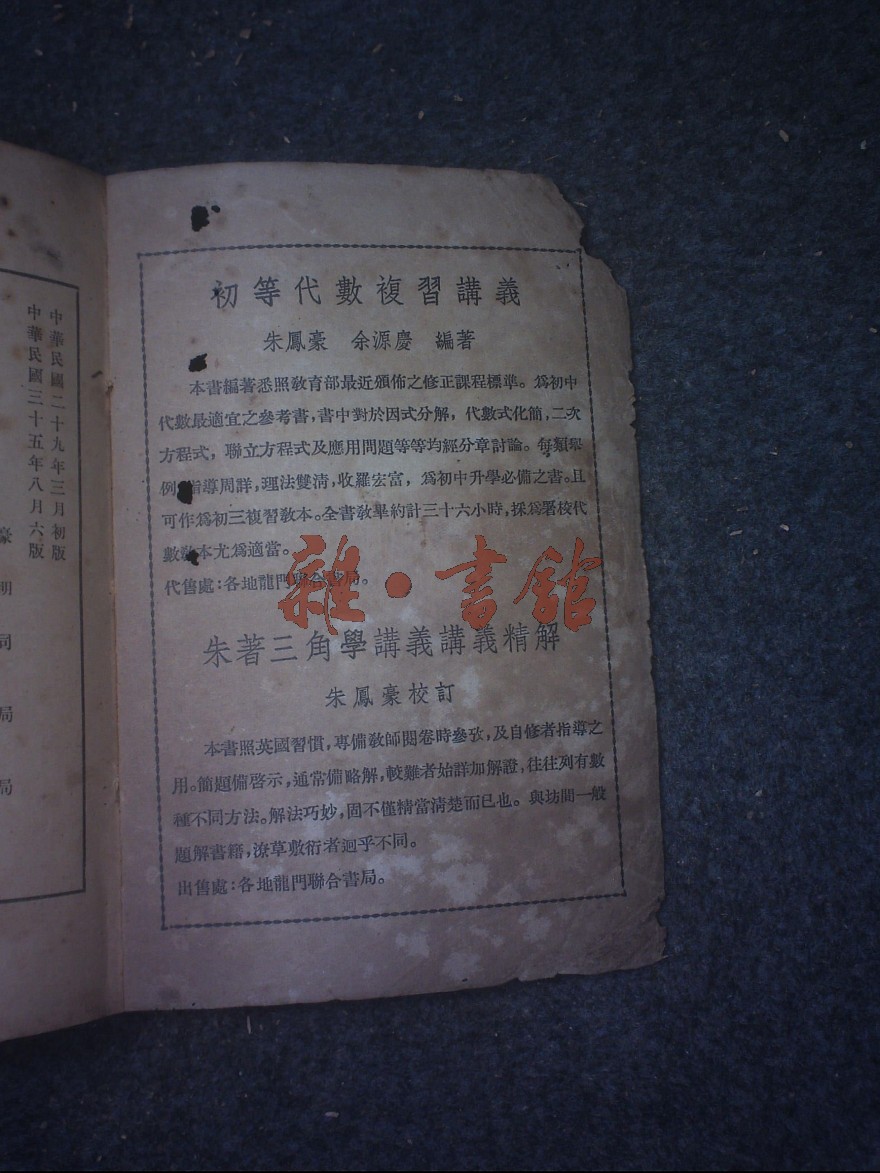 初等代數複習講義
朱鳳豪 余源慶 編著
本書編著悉照敎育部最近頒佈之修正課程標準。爲初中
代數最適宜之參考書，書中對於因式分解，代數式化簡，二次
方程式，聯立方程式及應用問題等等均經分章討論。每類
例 指導周詳，理法雙清，收羅宏富，爲初中升學必備之書。且
可作爲初三複習敎本。全書敎畢約計三十六小時，採爲署校代
數敎本尤爲適當。
代售處：各地龍門聯合書局。
雜·書舘
朱著三角學講義講義精解
朱鳳豪校訂
本書照英國習慣，專備敎師閱卷時參攷，及自修者指導之
用。簡題備啓示，通常備略解，較難者始詳加解證，往往列有數
種不同方法。解法巧妙，固不僅精當清楚而已也。與坊間一般
題解書籍，潦草敷衍者迥乎不同。
出售處：各地龍門聯合書局。
中華民國二十九年三月初版
中華民國三十五年八月六版
豪
明
同
局
局